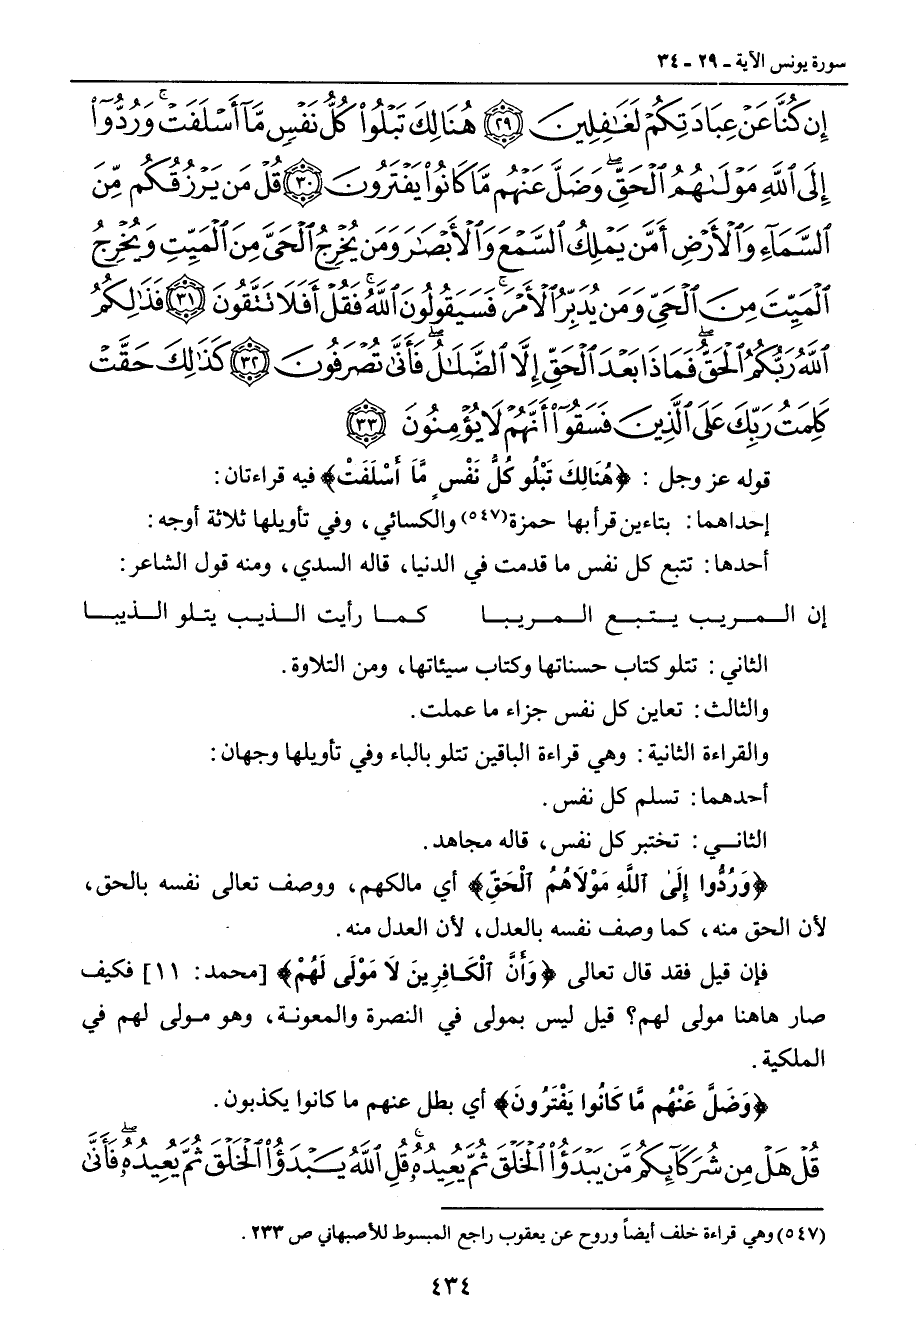 سورة يونس الآية - ٢٩ - ٣٤
إِن كُنَّا عَنْ عِبَادَتِكُمْ لَغَٰفِلِينَ ﴿٢٩﴾ هُنَالِكَ تَبْلُوا۟ كُلُّ نَفْسٍ مَّآ أَسْلَفَتْ ۚ وَرُدُّوٓا۟
إِلَى ٱللَّهِ مَوْلَىٰهُمُ ٱلْحَقِّ ۖ وَضَلَّ عَنْهُم مَّا كَانُوا۟ يَفْتَرُونَ ﴿٣٠﴾ قُلْ مَن يَرْزُقُكُم مِّنَ
ٱلسَّمَآءِ وَٱلْأَرْضِ أَمَّن يَمْلِكُ ٱلسَّمْعَ وَٱلْأَبْصَٰرَ وَمَن يُخْرِجُ ٱلْحَىَّ مِنَ ٱلْمَيِّتِ وَيُخْرِجُ
ٱلْمَيِّتَ مِنَ ٱلْحَىِّ وَمَن يُدَبِّرُ ٱلْأَمْرَ ۚ فَسَيَقُولُونَ ٱللَّهُ ۚ فَقُلْ أَفَلَا تَتَّقُونَ ﴿٣١﴾ فَذَٰلِكُمُ
ٱللَّهُ رَبُّكُمُ ٱلْحَقُّ ۖ فَمَاذَا بَعْدَ ٱلْحَقِّ إِلَّا ٱلضَّلَٰلُ ۖ فَأَنَّىٰ تُصْرَفُونَ ﴿٣٢﴾ كَذَٰلِكَ حَقَّتْ
كَلِمَتُ رَبِّكَ عَلَى ٱلَّذِينَ فَسَقُوٓا۟ أَنَّهُمْ لَا يُؤْمِنُونَ ﴿٣٣﴾
قوله عز وجل : ﴿هُنَالِكَ تَبْلُو كُلُّ نَفْسٍ مَّا أَسْلَفَتْ﴾ فيه قراءتان :
إحداهما : بتاءين قرأ بها حمزة(٥٤٧) والكسائي ، وفي تأويلها ثلاثة أوجه :
أحدها : تتبع كل نفس ما قدمت في الدنيا، قاله السدي، ومنه قول الشاعر :
إن المريب يتبع المريبا كما رأيت الذيب يتلو الذيبا
الثاني : تتلو كتاب حسناتها وكتاب سيئاتها، ومن التلاوة .
والثالث : تعاين كل نفس جزاء ما عملت .
والقراءة الثانية : وهي قراءة الباقين تتلو بالباء وفي تأويلها وجهان :
أحدهما : تسلم كل نفس .
الثاني : تختبر كل نفس ، قاله مجاهد .
﴿وَرُدُّوا إِلَىٰ اللَّهِ مَوْلَاهُمُ الْحَقِّ﴾ أي مالكهم، ووصف تعالى نفسه بالحق،
لأن الحق منه، كما وصف نفسه بالعدل، لأن العدل منه .
فإن قيل فقد قال تعالى ﴿وَأَنَّ الْكَافِرِينَ لَا مَوْلَى لَهُمْ﴾ [محمد : ١١] فكيف
صار هاهنا مولى لهم؟ قيل ليس بمولى في النصرة والمعونة، وهو مولى لهم في
الملكية .
﴿وَضَلَّ عَنْهُم مَّا كَانُوا يَفْتَرُونَ﴾ أي بطل عنهم ما كانوا يكذبون .
قُلْ هَلْ مِن شُرَكَآئِكُم مَّن يَبْدَؤُا۟ ٱلْخَلْقَ ثُمَّ يُعِيدُهُۥ ۚ قُلِ ٱللَّهُ يَبْدَؤُا۟ ٱلْخَلْقَ ثُمَّ يُعِيدُهُۥ ۖ فَأَنَّىٰ
(٥٤٧) وهي قراءة خلف أيضاً وروح عن يعقوب راجع المبسوط للأصبهاني ص ٢٣٣ .
٤٣٤